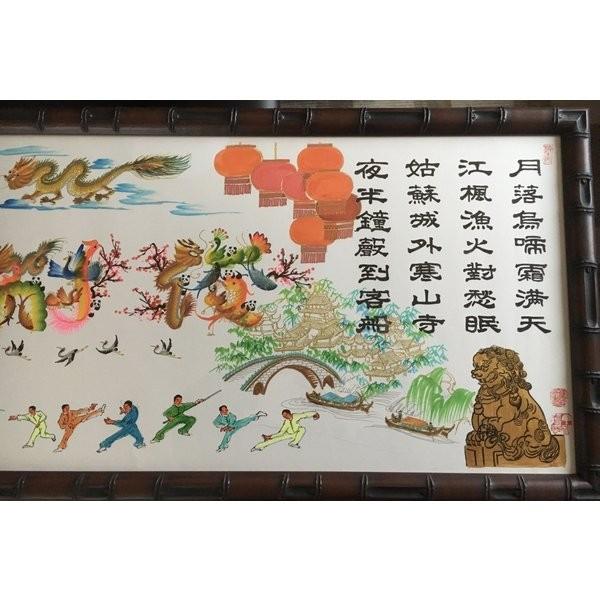 月落烏啼霜满天
江楓漁火對愁眠
姑蘇城外寒山寺
夜半鐘聲到客船